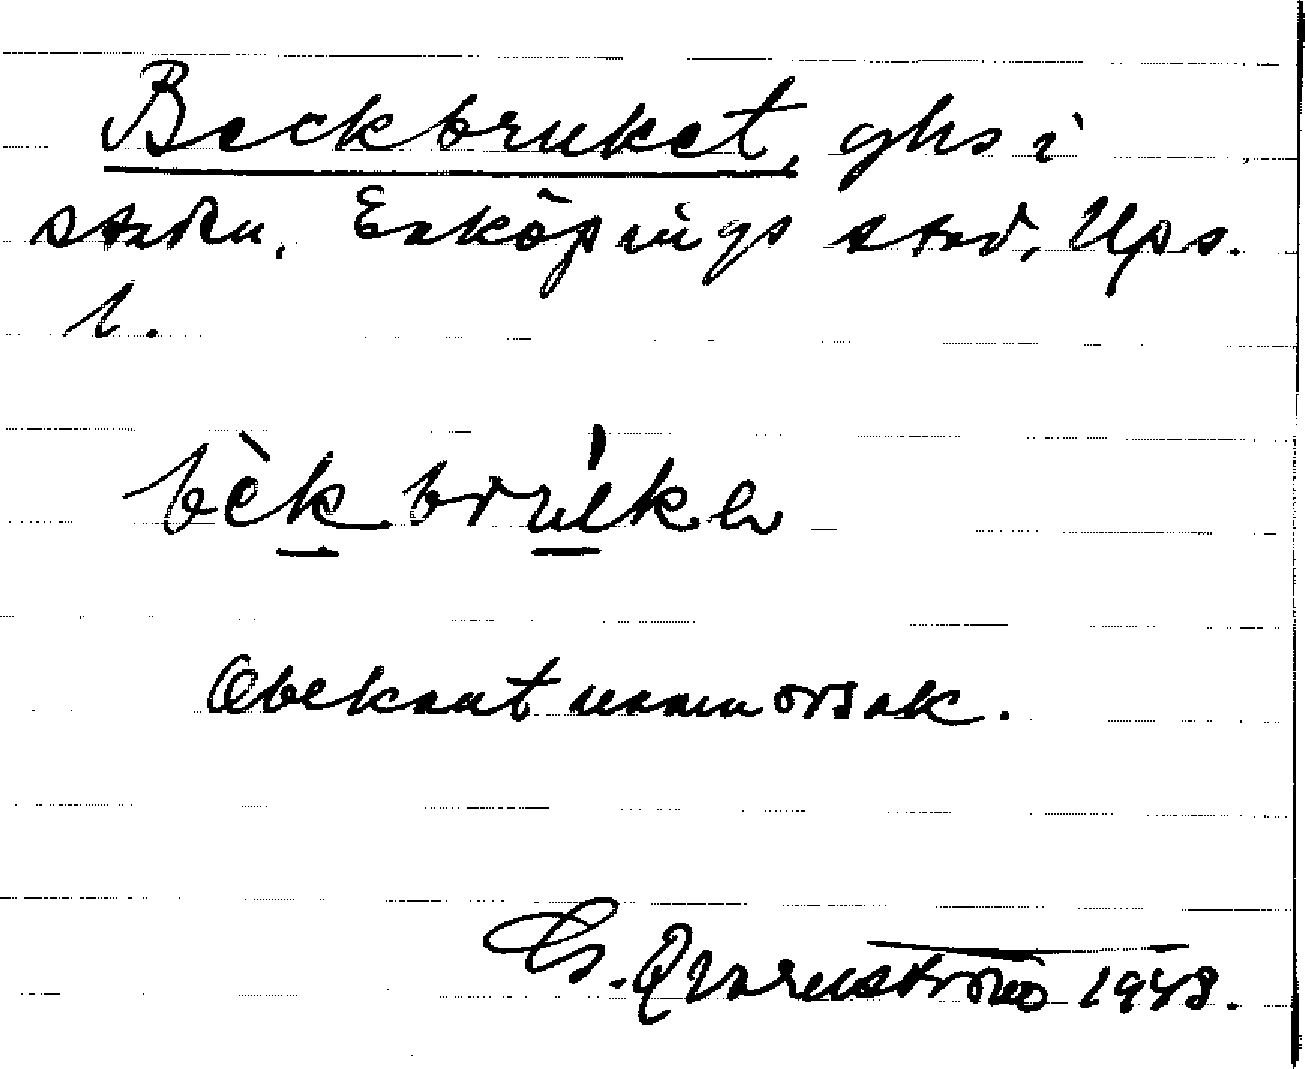 Beckbruket, ghs i
staden. Enköpings stad, Ups.
l.
bèk brúkə
Obekant namnorsak.
G. Qvarnström 1948.